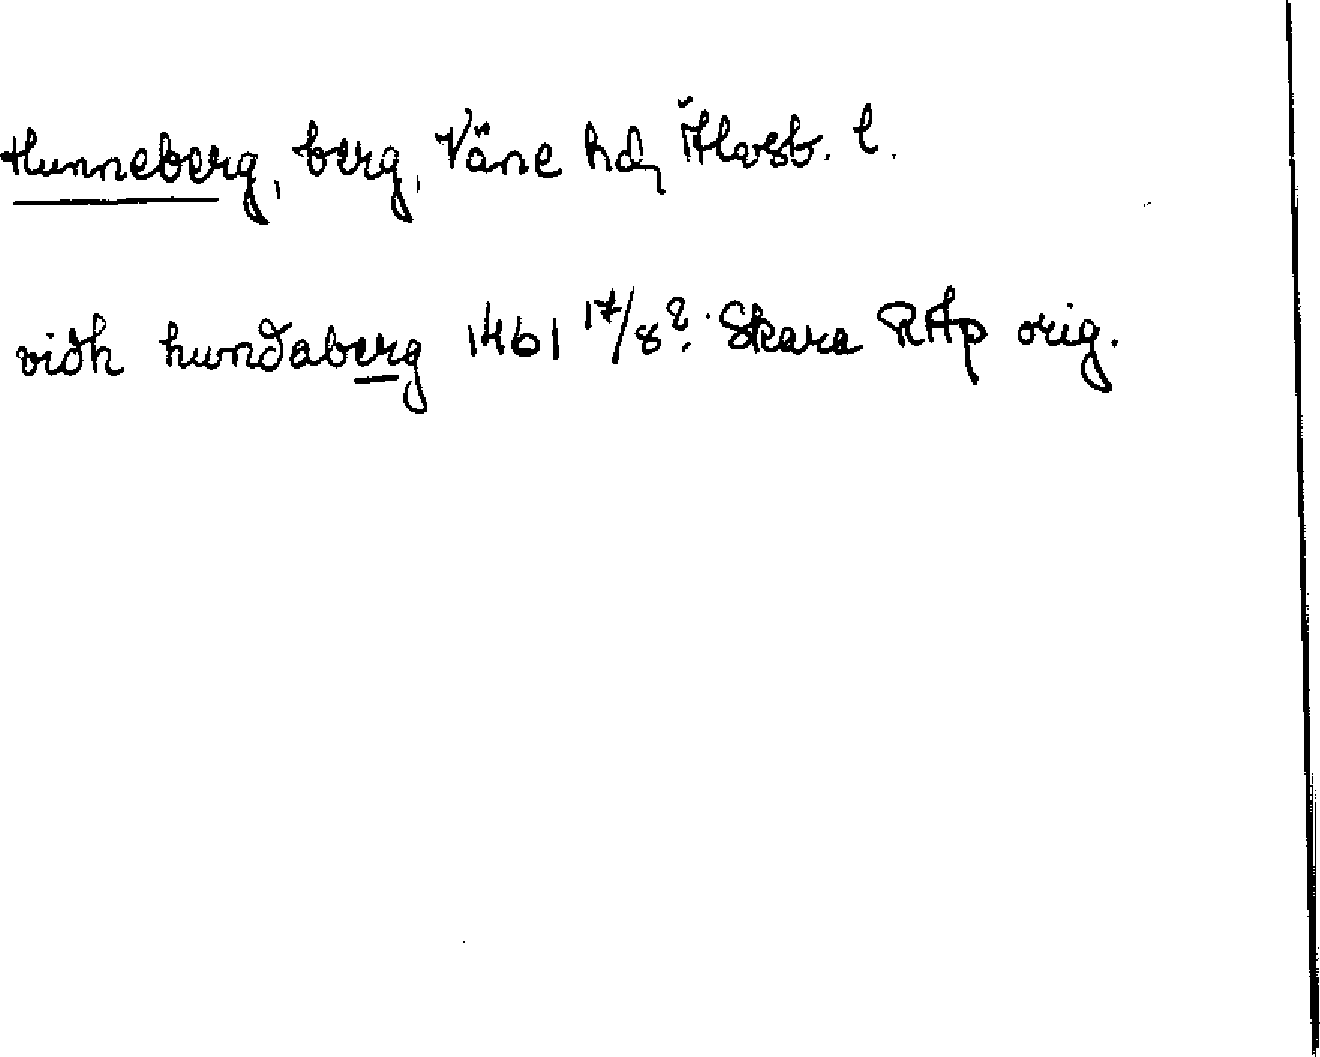 Hunneberg, berg, Väne hd, Älvsb. l.
vidh hundaberg 1461 17/8?. Skara RAp orig.